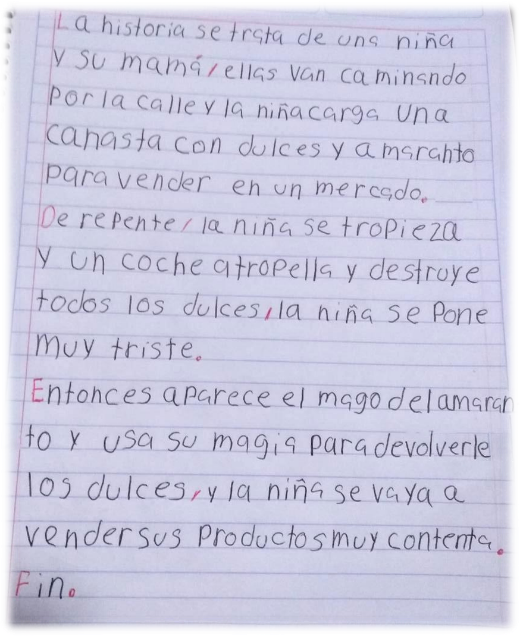 La historia se trata de una niña
y su mamá, ellas van caminando
por la calle y la niña carga una
canasta con dulces y amaranto
para vender en un mercado.
De repente, la niña se tropieza
y un coche atropella y destruye
todos los dulces, la niña se pone
muy triste.
Entonces aparece el mago del amaran
to y usa su magia para devolverle
los dulces, y la niña se vaya a
vender sus productos muy contenta.
Fin.